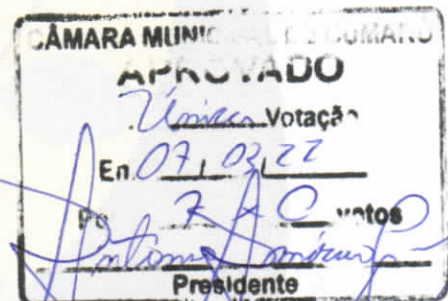 CÂMARA MUNICIPAL DO CUMARU
APROVADO
Única Votação
Em 07/03/22
Po 7 x 0 votos
Antonio
Presidente